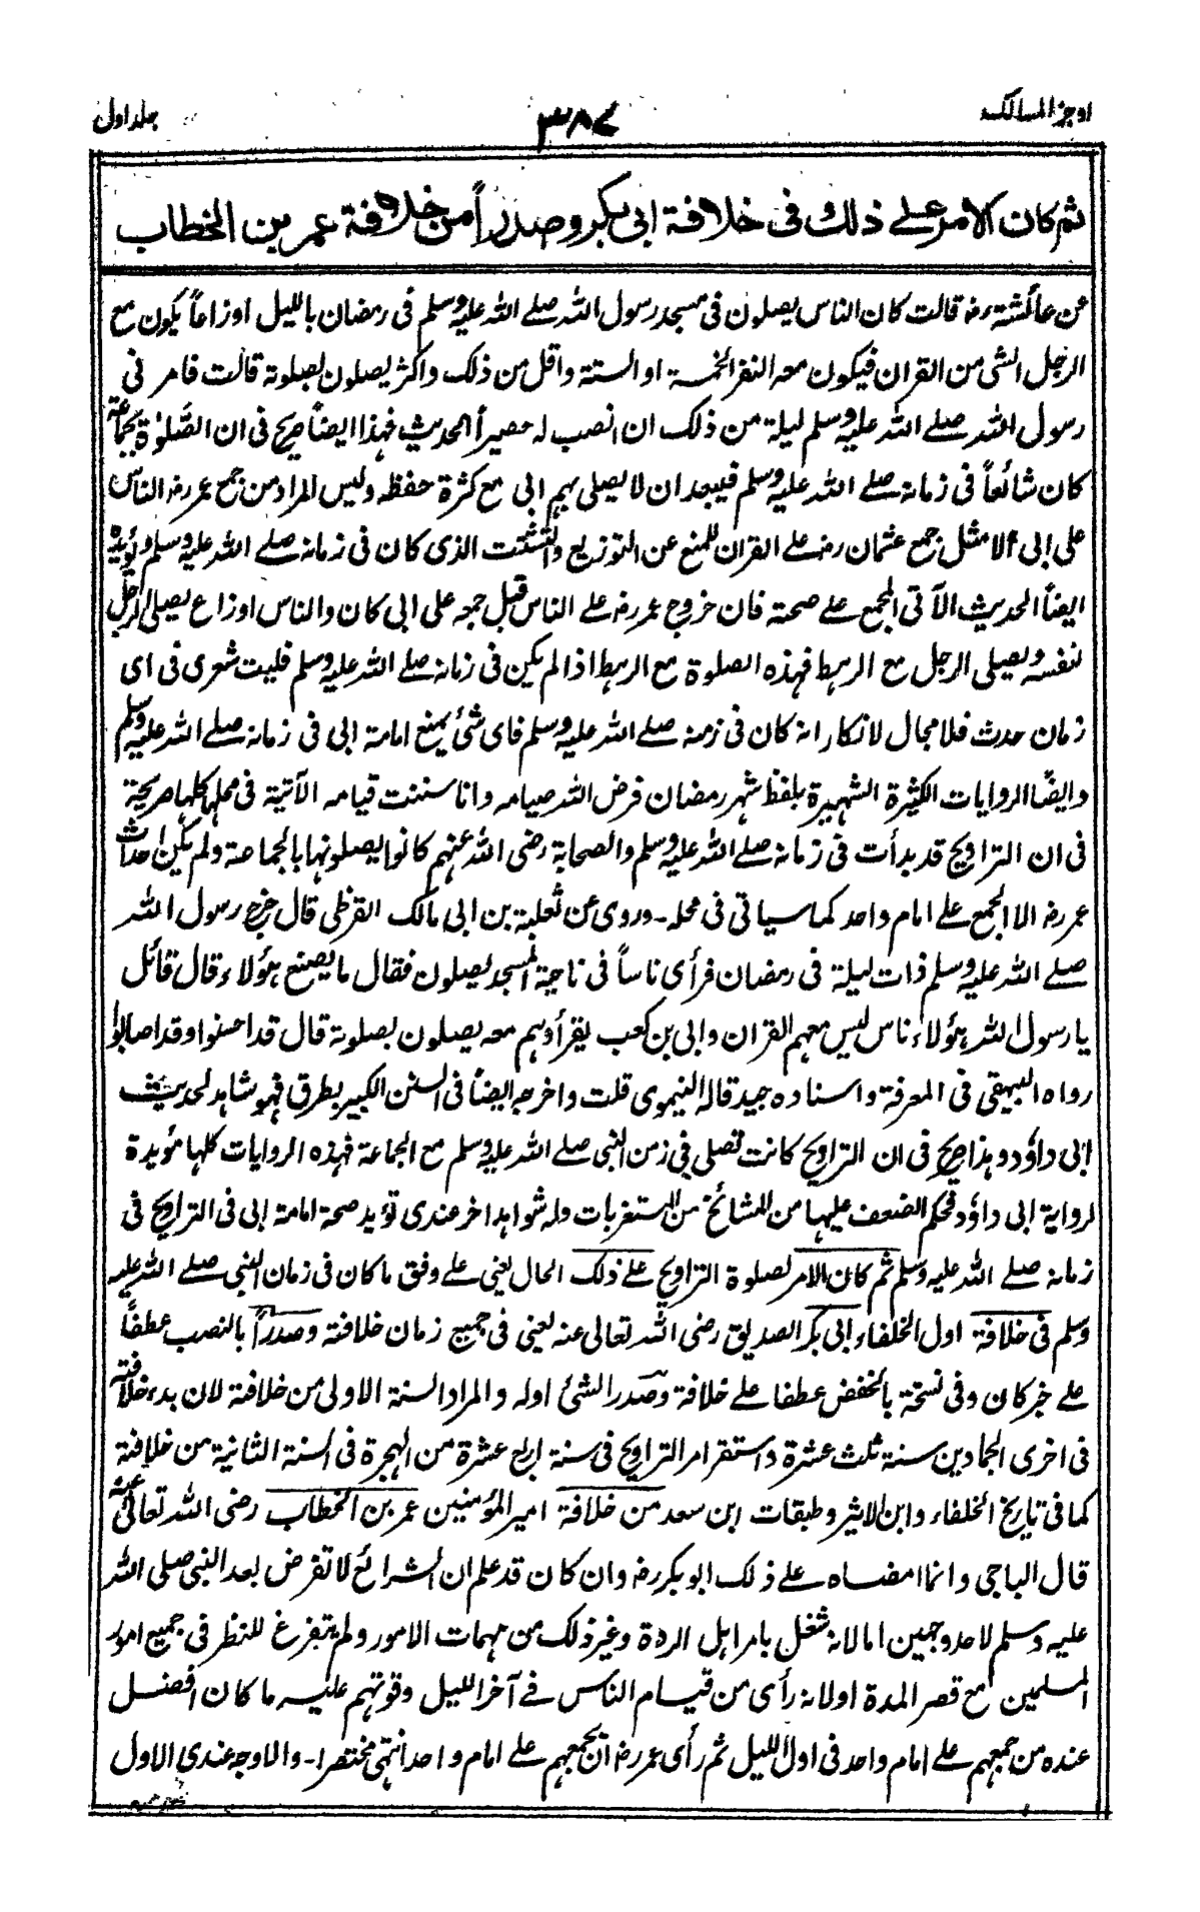 اوجز المسالك
٣٨٧
جلد اول
ثم كان الامر على ذلك فى خلافة ابى بكر وصدراً من خلافة عمر بن الخطاب
عن عائشة رض قالت كان الناس يصلون فى مسجد رسول الله صلى الله عليه وسلم فى رمضان بالليل اوزاعاً يكون مع
الرجل الشئ من القران فيكون معه النفر الخمسة او الستة واقل من ذلك واكثر يصلون بصلوته قالت فامرنى
رسول الله صلى الله عليه وسلم ليلة من ذلك ان انصب له حصيراً الحديث فهذا ايضاً صريح فى ان الصَّلوٰة بجماعة
كان شائعاً فى زمانه صلى الله عليه وسلم فيبعد ان لا يصلى بهم ابى مع كثرة حفظه وليس المراد من جمع عمر رض الناس
على ابى الا مثل جمع عثمان رض على القران للمنع عن التوزيع والتشتت الذى كان فى زمانه صلى الله عليه وسلم ويؤيده
ايضاً الحديث الآتى المجمع على صحته فان خروج عمر رض على الناس قبل جمعه على ابى كان والناس اوزاع يصلى الرجل
لنفسه ويصلى الرجل مع الرهط فهذه الصلوة مع الرهط اذا لم يكن فى زمانه صلى الله عليه وسلم فليت شعرى فى اى
زمان حدث فلا مجال لانكار انه كان فى زمنه صلى الله عليه وسلم فاى شئ يمنع امامة ابى فى زمانه صلى الله عليه وسلم
وايضًا الروايات الكثيرة الشهيرة بلفظ شهر رمضان فرض الله صيامه وانا سننت قيامه الآتية فى محلها كلها صريحة
فى ان التراويح قد بدأت فى زمانه صلى الله عليه وسلم والصحابة رضى الله عنهم كانوا يصلونها بالجماعة ولم يكن احداث
عمر رض الا الجمع على امام واحد كما سياتى فى محله ـ وروى عن ثعلبة بن ابى مالك القرظى قال خرج رسول الله
صلى الله عليه وسلم ذات ليلة فى رمضان فرأى ناساً فى ناحية المسجد يصلون فقال ما يصنع هؤلاء قال قائل
يا رسول الله هؤلاء ناس ليس معهم القران وابى بن كعب يقرأ وهم معه يصلون بصلوته قال قد احسنوا وقد اصابوا
رواه البيهقى فى المعرفة واسناده جيد قاله النيموى قلت واخرجه ايضاً فى السنن الكبير بطرق فهو شاهد لحديث
ابى داؤد وهذا صريح فى ان التراويح كانت تصلى فى زمن النبى صلى الله عليه وسلم مع الجماعة فهذه الروايات كلها مؤيدة
لرواية ابى داؤد فحكم الضعف عليها من المشائخ من المستغربات وله شواهد اخر عندى تؤيد صحة امامة ابى فى التراويح فى
زمانه صلى الله عليه وسلم ثم كان الامر لصلوة التراويح على ذلك الحال يعنى على وفق ما كان فى زمان النبى صلى الله عليه
وسلم فى خلافة اول الخلفاء ابى بكر الصديق رضى الله تعالى عنه يعنى فى جميع زمان خلافته وصدراً بالنصب عطفاً
على خبر كان وفى نسخة بالخفض عطفا على خلافة وصدر الشئ اوله والمراد السنة الاولى من خلافته لان بدء خلافته
فى اخرى الجمادين سنة ثلث عشرة واستقر امر التراويح فى سنة اربع عشرة من الهجرة فى السنة الثانية من خلافته
كما فى تاريخ الخلفاء وابن الاثير وطبقات ابن سعد من خلافة امير المؤمنين عمر بن الخطاب رضى الله تعالىٰ عنه
قال الباجى وانما امضاه على ذلك ابو بكر رض وان كان قد علم ان الشرائع لا تفرض بعد النبى صلى الله
عليه وسلم لاحد وجهين اما لانه شغل بامر اهل الردة وغير ذلك من مهمات الامور ولم يتفرغ للنظر فى جميع امور
المسلمين مع قصر المدة اولانه رأى من قيام الناس فى آخر الليل وقوتهم عليه ما كان افضل
عنده من جمعهم على امام واحد فى اول الليل ثم رأى عمر رض ان يجمعهم على امام واحد انتهى مختصرا ـ والاوجه عندى الاول